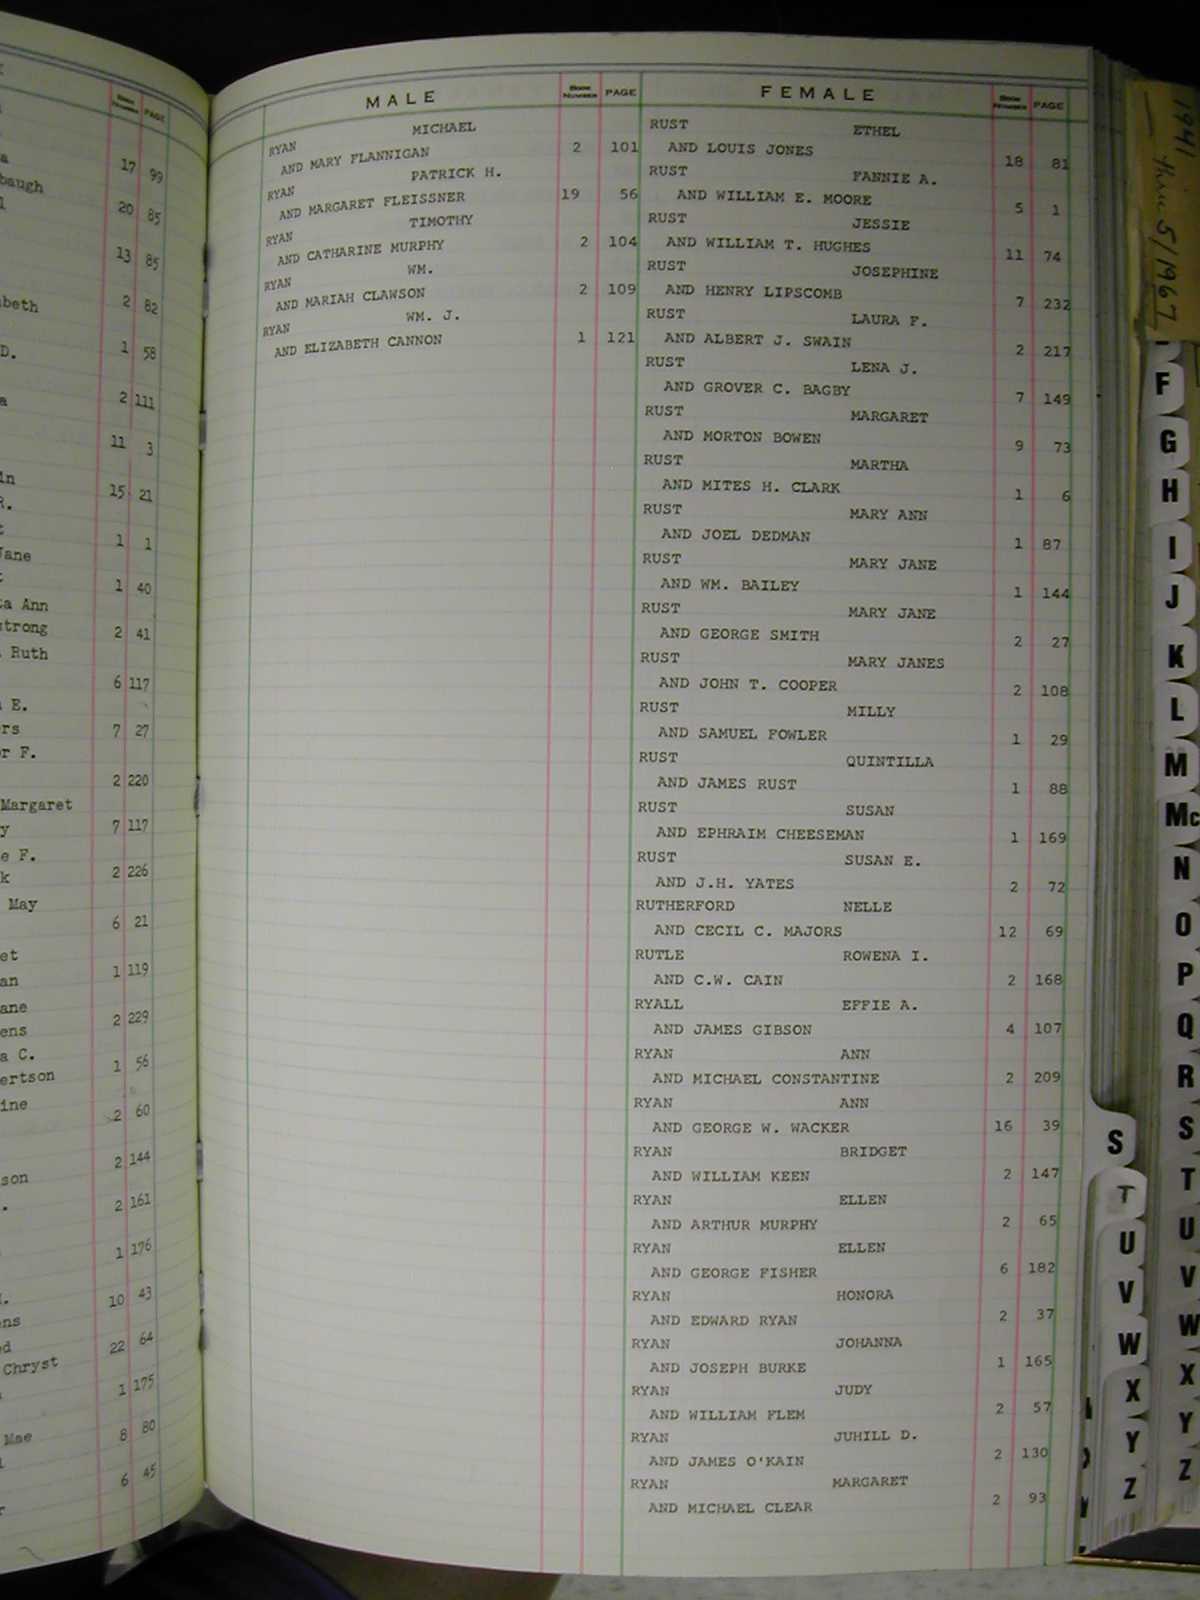 BOOK NUMBER PAGE
17 99
baugh
20 85
13 85
beth
2 82
D.
1 58
2 111
11 3
in
15 21
R.
1 1
Jane
1 40
ta Ann
strong
2 41
Ruth
6 117
E.
ers
7 27
r F.
2 220
Margaret
y
7 117
e F.
k
2 226
May
6 21
et
an
1 119
ane
ens
2 229
a C.
1 56
ertson
ine
2 60
2 144
son
2 161
1 176
10 43
ens
ed
22 64
Chryst
1 175
Mae
8 80
6 45
r
MALE BOOK NUMBER PAGE
RYAN MICHAEL
AND MARY FLANNIGAN 2 101
RYAN PATRICK H.
AND MARGARET FLEISSNER 19 56
RYAN TIMOTHY
AND CATHARINE MURPHY 2 104
RYAN WM.
AND MARIAH CLAWSON 2 109
RYAN WM. J.
AND ELIZABETH CANNON 1 121
FEMALE BOOK NUMBER PAGE
RUST ETHEL
AND LOUIS JONES 18 81
RUST FANNIE A.
AND WILLIAM E. MOORE 5 1
RUST JESSIE
AND WILLIAM T. HUGHES 11 74
RUST JOSEPHINE
AND HENRY LIPSCOMB 7 232
RUST LAURA F.
AND ALBERT J. SWAIN 2 217
RUST LENA J.
AND GROVER C. BAGBY 7 149
RUST MARGARET
AND MORTON BOWEN 9 73
RUST MARTHA
AND MITES H. CLARK 1 6
RUST MARY ANN
AND JOEL DEDMAN 1 87
RUST MARY JANE
AND WM. BAILEY 1 144
RUST MARY JANE
AND GEORGE SMITH 2 27
RUST MARY JANES
AND JOHN T. COOPER 2 108
RUST MILLY
AND SAMUEL FOWLER 1 29
RUST QUINTILLA
AND JAMES RUST 1 88
RUST SUSAN
AND EPHRAIM CHEESEMAN 1 169
RUST SUSAN E.
AND J.H. YATES 2 72
RUTHERFORD NELLE
AND CECIL C. MAJORS 12 69
RUTLE ROWENA I.
AND C.W. CAIN 2 168
RYALL EFFIE A.
AND JAMES GIBSON 4 107
RYAN ANN
AND MICHAEL CONSTANTINE 2 209
RYAN ANN
AND GEORGE W. WACKER 16 39
RYAN BRIDGET
AND WILLIAM KEEN 2 147
RYAN ELLEN
AND ARTHUR MURPHY 2 65
RYAN ELLEN
AND GEORGE FISHER 6 182
RYAN HONORA
AND EDWARD RYAN 2 37
RYAN JOHANNA
AND JOSEPH BURKE 1 165
RYAN JUDY
AND WILLIAM FLEM 2 57
RYAN JUHILL D.
AND JAMES O'KAIN 2 130
RYAN MARGARET
AND MICHAEL CLEAR 2 93
1941 thru 5/1967
F
G
H
I
J
K
L
M
Mc
N
O
P
Q
R
S
T
U
V
W
X
Y
Z
S
T
U
V
W
X
Y
Z